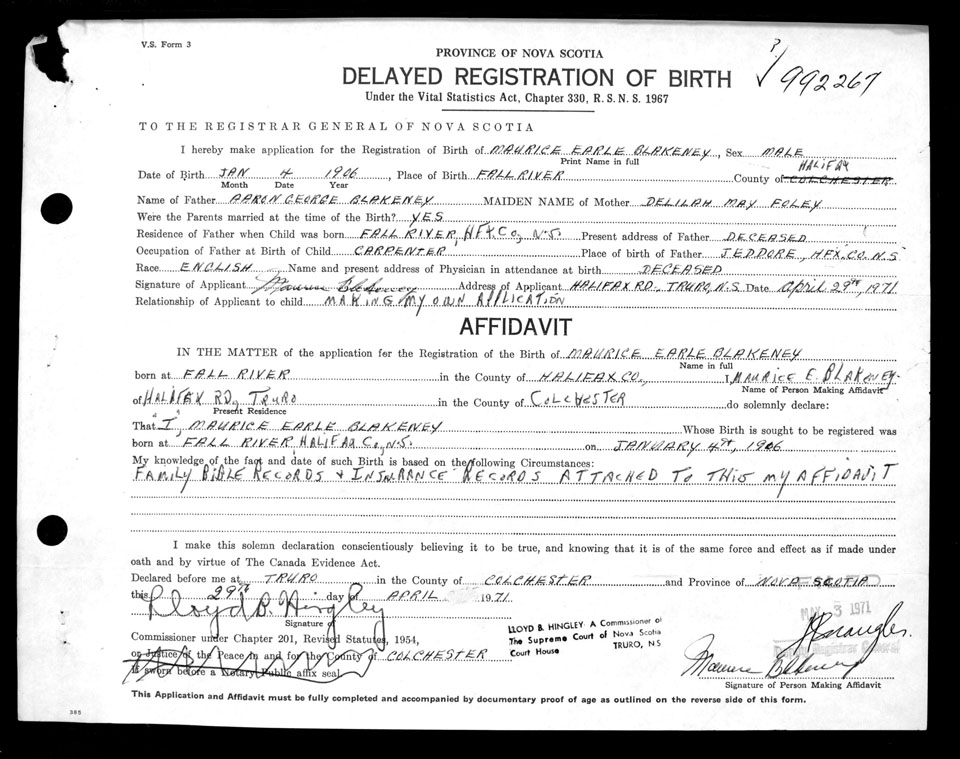 V.S. Form 3
PROVINCE OF NOVA SCOTIA
DELAYED REGISTRATION OF BIRTH
992267
Under the Vital Statistics Act, Chapter 330, R.S.N.S. 1967
TO THE REGISTRAR GENERAL OF NOVA SCOTIA
I hereby make application for the Registration of Birth of MAURICE EARLE BLAKENEY, Sex MALE
Print Name in full
HALIFAX
Date of Birth JAN 4 1906, Place of Birth FALL RIVER County of COLCHESTER
Month Date Year
Name of Father AARON GEORGE BLAKENEY MAIDEN NAME of Mother DELILAH MAY FOLEY
Were the Parents married at the time of the Birth? YES
Residence of Father when Child was born FALL RIVER, HFX. Co, N.S. Present address of Father DECEASED
Occupation of Father at Birth of Child CARPENTER Place of birth of Father JEDDORE, HFX. CO. N.S
Race ENGLISH Name and present address of Physician in attendance at birth DECEASED
Signature of Applicant Maurice Blakeney Address of Applicant HALIFAX RD., TRURO, N.S. Date April 29th, 1971
Relationship of Applicant to child MAKING MY OWN APPLICATION
AFFIDAVIT
IN THE MATTER of the application for the Registration of the Birth of MAURICE EARLE BLAKENEY
Name in full
born at FALL RIVER in the County of HALIFAX CO., I, MAURICE E. BLAKENEY
Name of Person Making Affidavit
of HALIFAX RD, TRURO in the County of COLCHESTER do solemnly declare:
Present Residence
That "I", MAURICE EARLE BLAKENEY Whose Birth is sought to be registered was
born at FALL RIVER, HALIFAX Co, N.S. on JANUARY 4th, 1906
My knowledge of the fact and date of such Birth is based on the following Circumstances:
FAMILY BIBLE RECORDS & INSURANCE RECORDS ATTACHED TO THIS MY AFFIDAVIT
I make this solemn declaration conscientiously believing it to be true, and knowing that it is of the same force and effect as if made under
oath and by virtue of The Canada Evidence Act.
Declared before me at TRURO in the County of COLCHESTER and Province of NOVA SCOTIA
this 29th day of APRIL 1971
MAY 3 1971
Lloyd B. Hingley
Signature of
Commissioner under Chapter 201, Revised Statutes, 1954,
or Justice of the Peace in and for the County of COLCHESTER
If sworn before a Notary Public affix seal
LLOYD B. HINGLEY A Commissioner of
The Supreme Court of Nova Scotia
Court House TRURO, N.S
Deputy Registrar General
Maurice Blakeney
Signature of Person Making Affidavit
This Application and Affidavit must be fully completed and accompanied by documentary proof of age as outlined on the reverse side of this form.
385